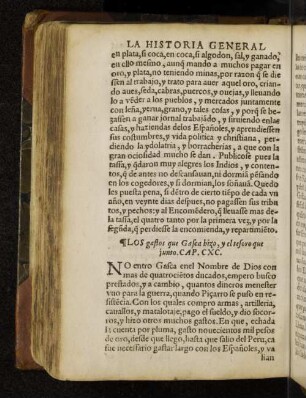 LA HISTORIA GENERAL
en plata, si coca, en coca, si algodon, sal, y ganado,
en ello mesmo, aunq̃ mando a muchos pagar en
oro, y plata, no teniendo minas, por razon q̃ se dies
sen al trabajo, y trato para auer aquel oro, crian-
do aues, seda, cabras, puercos, y ouejas, y lleuando
lo a vẽder a los pueblos, y mercados juntamente
con leña, yerua, grano, y tales cosas, y porq̃ se be-
gassen a ganar jornal trabajãdo, y siruiendo enlas
casas, y haziendas delos Españoles, y aprendiessen
sus costumbres, y vida politica y christiana, per-
diendo la ydolatria, y borracherias, a que con la
gran ociosidad mucho se dan. Publicose pues la
tassa, q̃daron muy alegres los Indios, y conten-
tos, q̃ de antes no descansauan, ni dormiã pẽsando
en los cogedores, y si dormian, los soñauã. Quedo
les puesta pena, si dẽtro de cierto tiẽpo de cada vn
año, en veynte dias despues, no pagassen sus tribu
tos, y pechos: y al Encomẽdero, q̃ lleuasse mas de
la tassa, el quatro tanto por la primera vez, y por la
segũda, q̃ perdiesse la encomienda, y repartimiẽto.
¶LOS gastos que Gasca hizo, y el tesoro que
junto. CAP. CXC.
NO entro Gasca enel Nombre de Dios con
mas de quatrociẽtos ducados, empero busco
prestados, y a cambio, quantos dineros menester
vuo para la guerra, quando Piçarro se puso en re-
sistẽcia. Con los quales compro armas, artilleria,
cauallos, y matalotaje, pago el sueldo, y dio socor-
ros, y hizo otros muchos gastos. En que, echada
la cuenta por pluma, gasto nouecientos mil pesos
de oro, desde que llego, hasta que salio del Peru, ca
fue necessario gastar largo con los Españoles, y va
lian